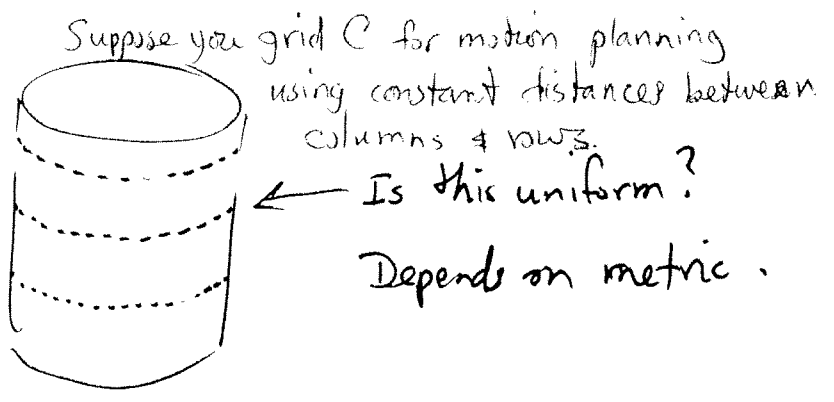 Suppose you grid C for motion planning
using constant distances between
columns & rows.
Is this uniform?
Depends on metric.